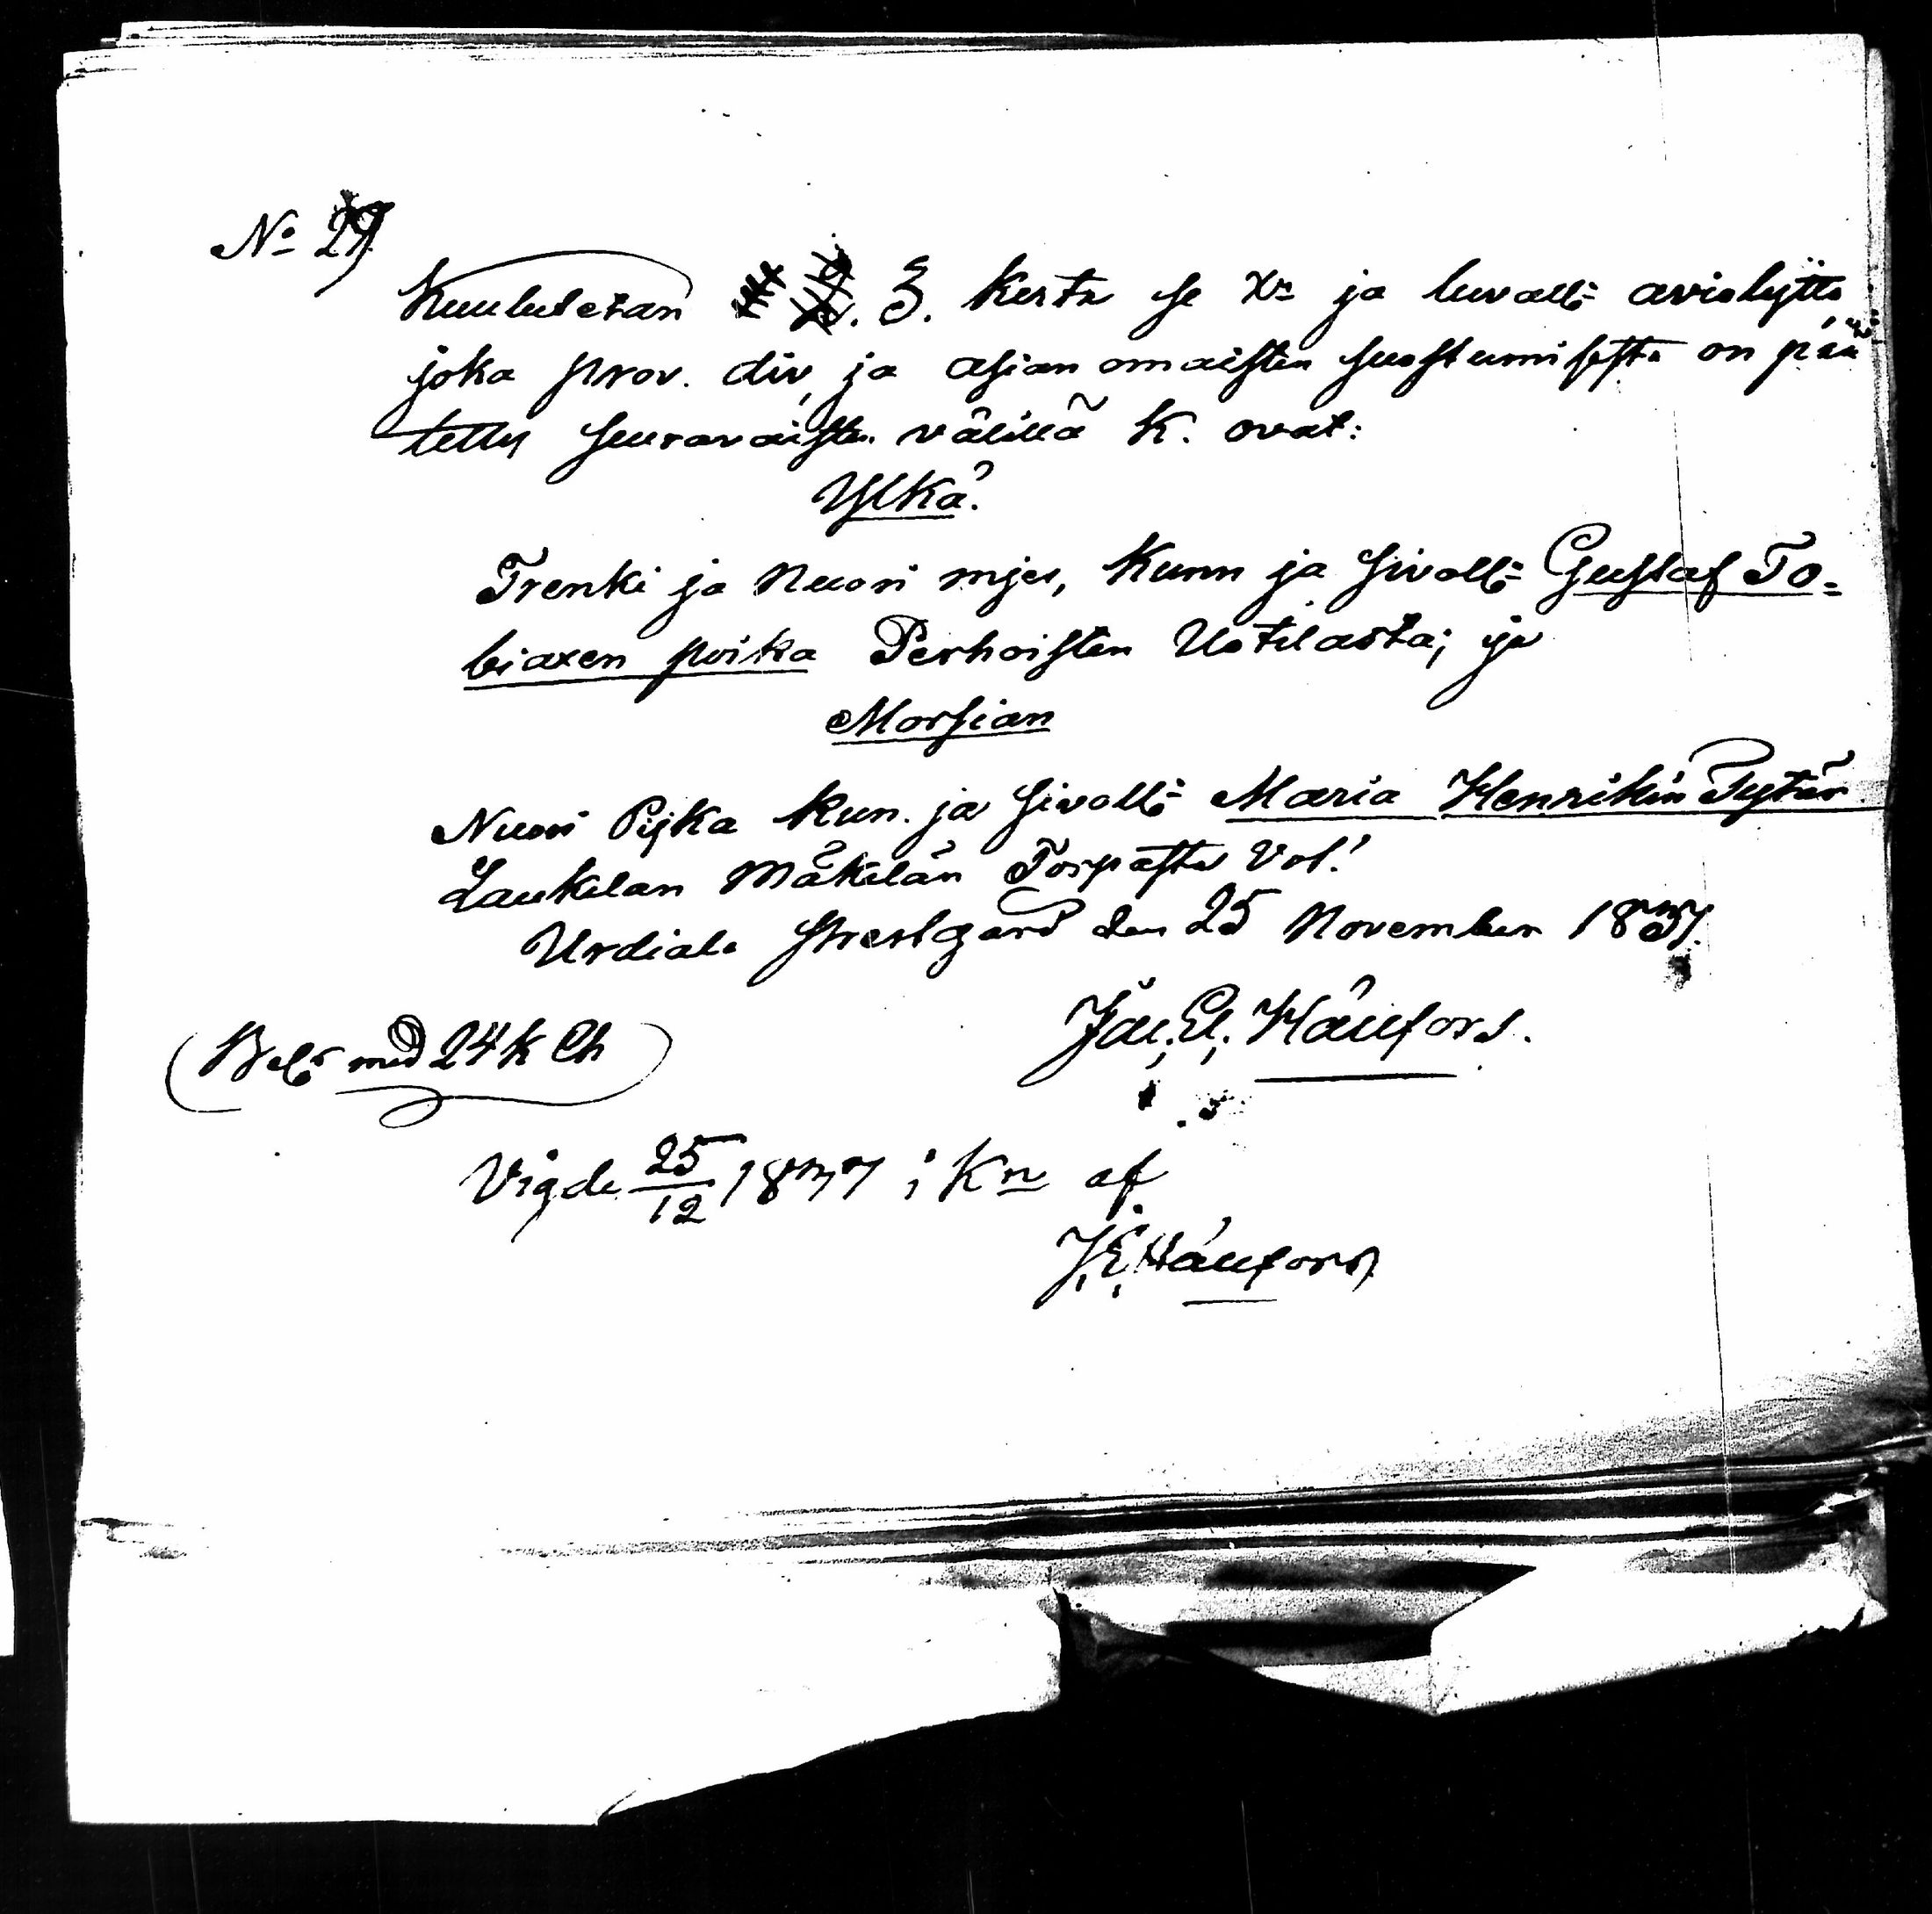 No 27
Kuulutetan 3. kerta se Xn ja luvalln aviokytto,
joka prov. div, ja asian omaisten suostumisesta on pää
tetty seuravaisten välillä k. ovat:
Ylkä.
Trenki ja Nuori mjes, Kunn ja sivolln Gustaf To=
biaxen poika Perhoisten Uotilasta; ja
Morsian
Nuori Pijka kun. ja sivolln Maria Henrikin Tytär
Laukelan Mäkelän Torpasta Vol!
Urdiala Prestgård den 25 November 1837.
Jac. E. Hällfors.
(Belr med 24 k Ch)
Vigde 25/12 1837 i Kn af
J. E. Hällfors